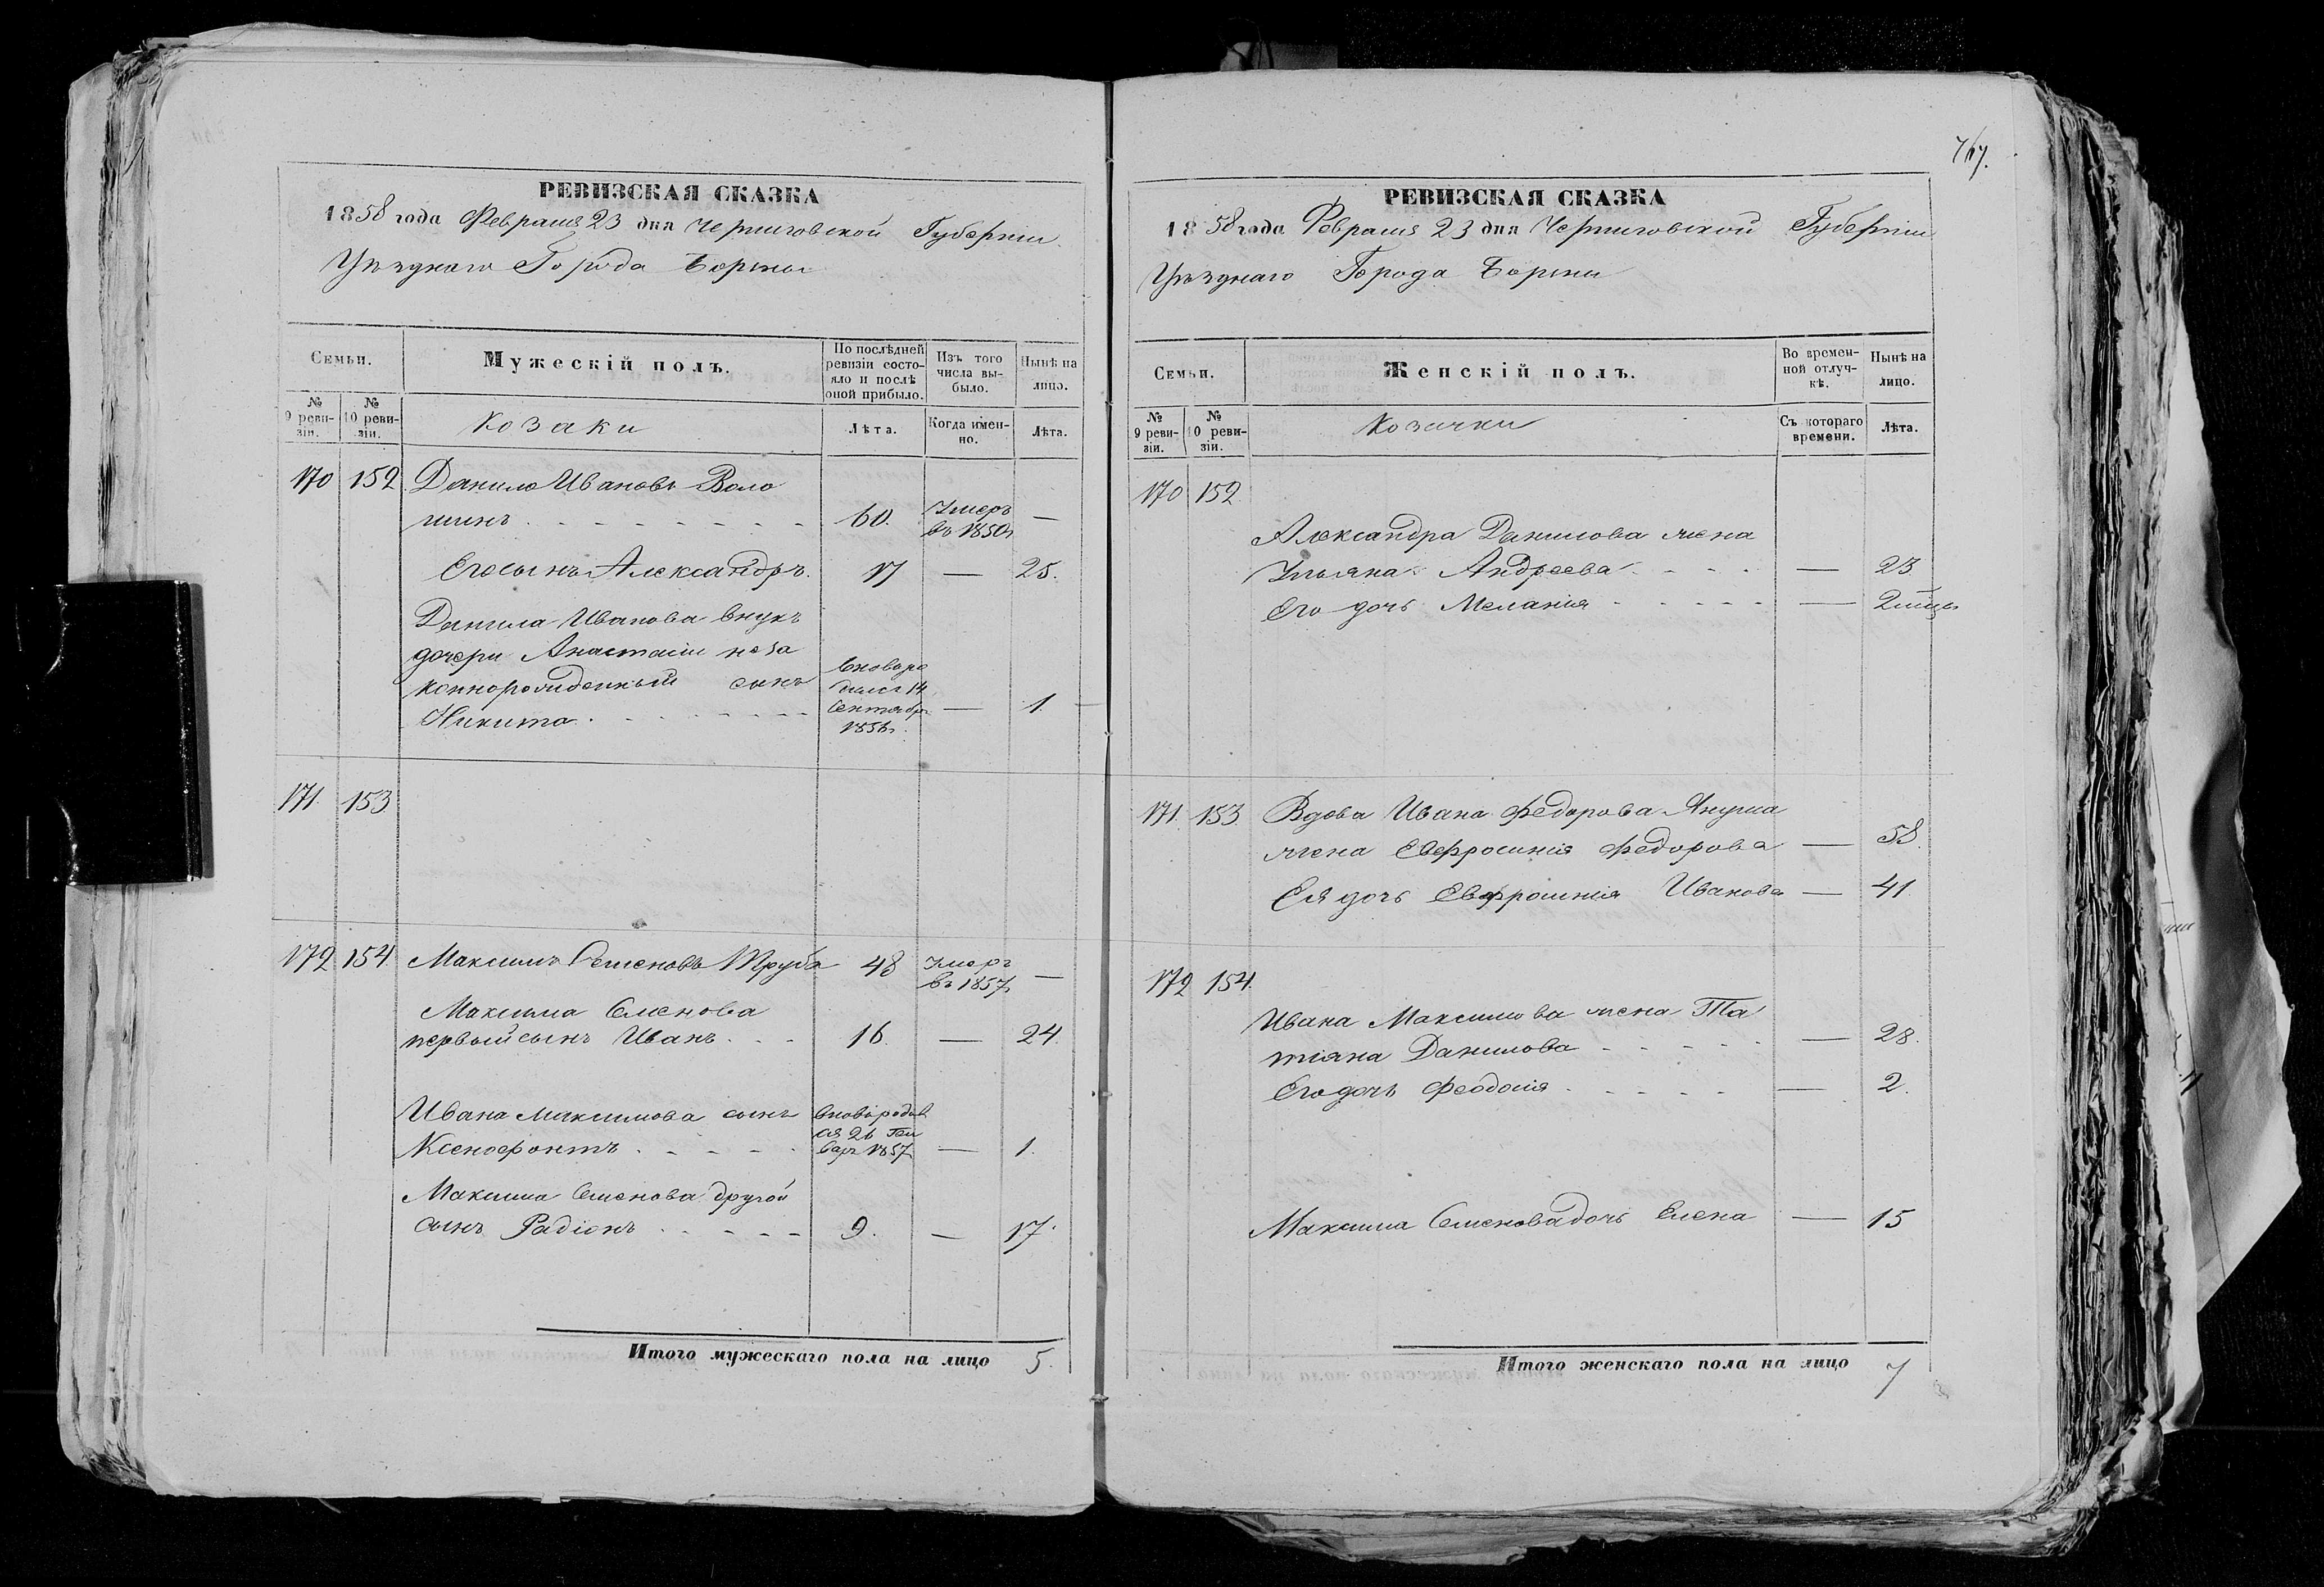 767.
РЕВИЗСКАЯ СКАЗКА
1858 года Февраля 23 дня Черниговской Губернии
Уѣзднаго Города Борзны
Семьи.
Мужескій полъ.
По послѣдней ревизіи состояло и послѣ оной прибыло.
Изъ того числа выбыло.
Нынѣ на лицо.
№ 9 ревизіи.
№ 10 ревизіи.
Козаки
Лѣта.
Когда именно.
Лѣта.
170 152 Данило Ивановъ Воло
шинъ 60. Умеръ въ 1850г —
Его сынъ Александръ. 17 — 25.
Данила Иванова внукъ
дочери Анастасіи неза
коннорожденный сынъ
Никита вновь родился 14 Сентября 1856г. — 1.
171. 153
172 154 Максимъ Семеновъ Труба 48 Умеръ въ 1857г —
Максима Семенова
первый сынъ Иванъ 16. — 24.
Ивана Максимова сынъ
Ксенофонтъ вновь родился 26 Генваря 1857 — 1.
Максима Семенова другой
сынъ Радіонъ 9. — 17.
Итого мужескаго пола на лицо 5.
РЕВИЗСКАЯ СКАЗКА
1858 года Февраля 23 дня Черниговской Губерніи
Уѣзднаго Города Борзны
Семьи.
Женскій полъ.
Во временной отлучкѣ.
Нынѣ на лицо.
№ 9 ревизіи.
№ 10 ревизіи.
Козачки
Съ котораго времени.
Лѣта.
170 152
Александра Данилова жена
Ульяна Андреева — 23
Его дочь Меланія — 2 мѣця
171. 153. Вдова Ивана Федорова
жена Евфросинія Федорова — 58.
Ея дочь Евфросинія Иванова — 41
172 154.
Ивана Максимова жена Та
тіяна Данилова — 28.
Его дочь Феодосія — 2.
Максима Семенова дочь Елена — 15
Итого женскаго пола на лицо 7